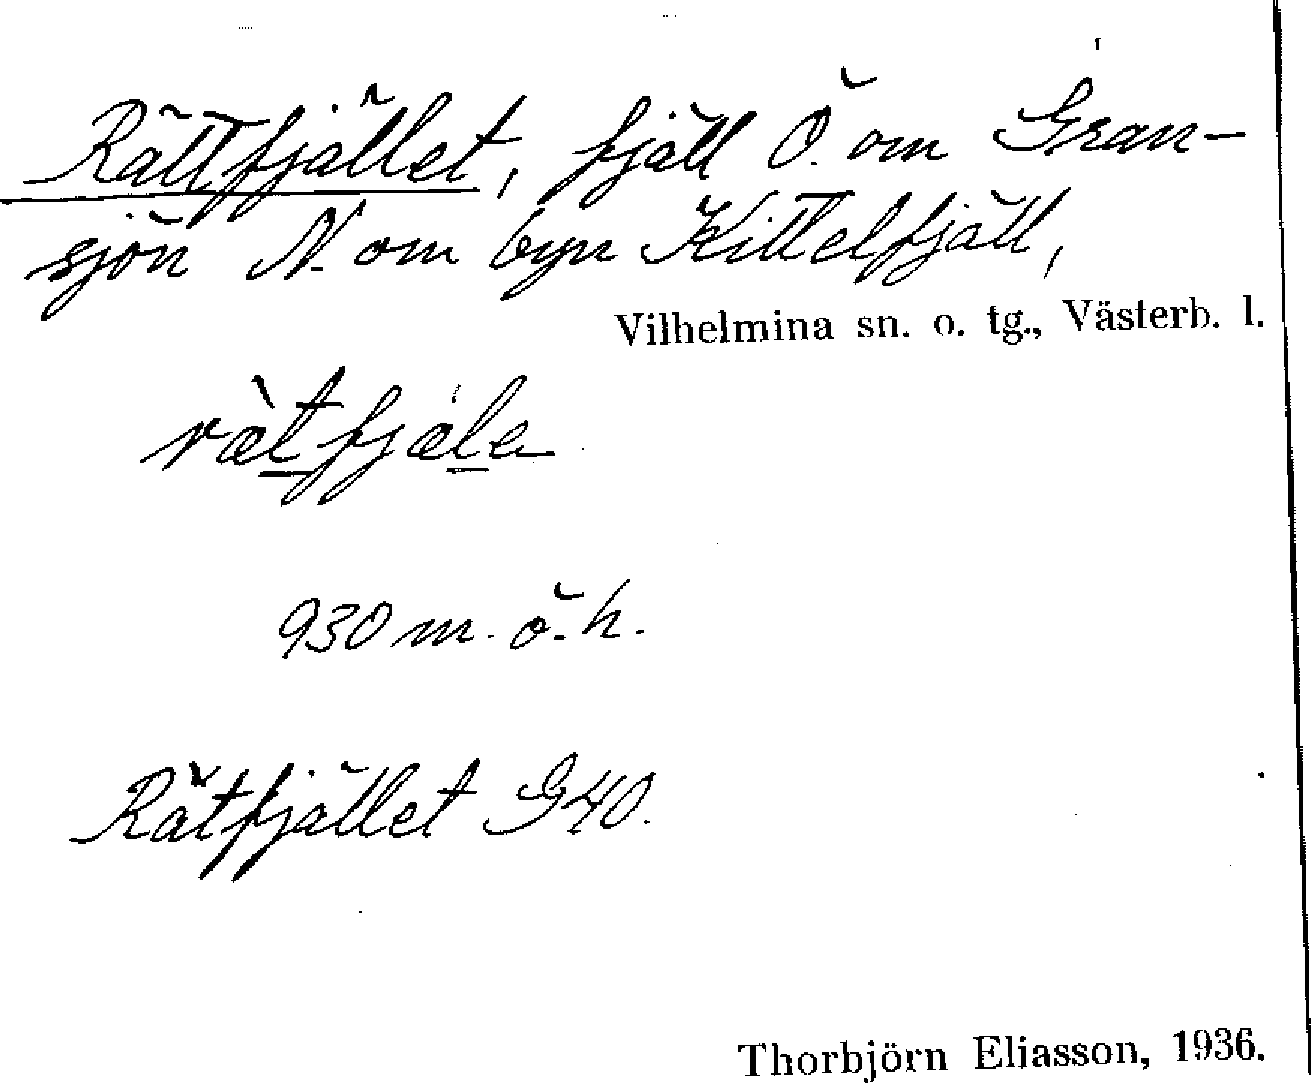 Rättfjället, fjäll Ö. om Gran-
sjön N. om byn Kittelfjäll,
Vilhelmina sn. o. tg., Västerb. l.
rætfjæla
930 m. ö. h.
Rätfjället G40.
Thorbjörn Eliasson, 1936.